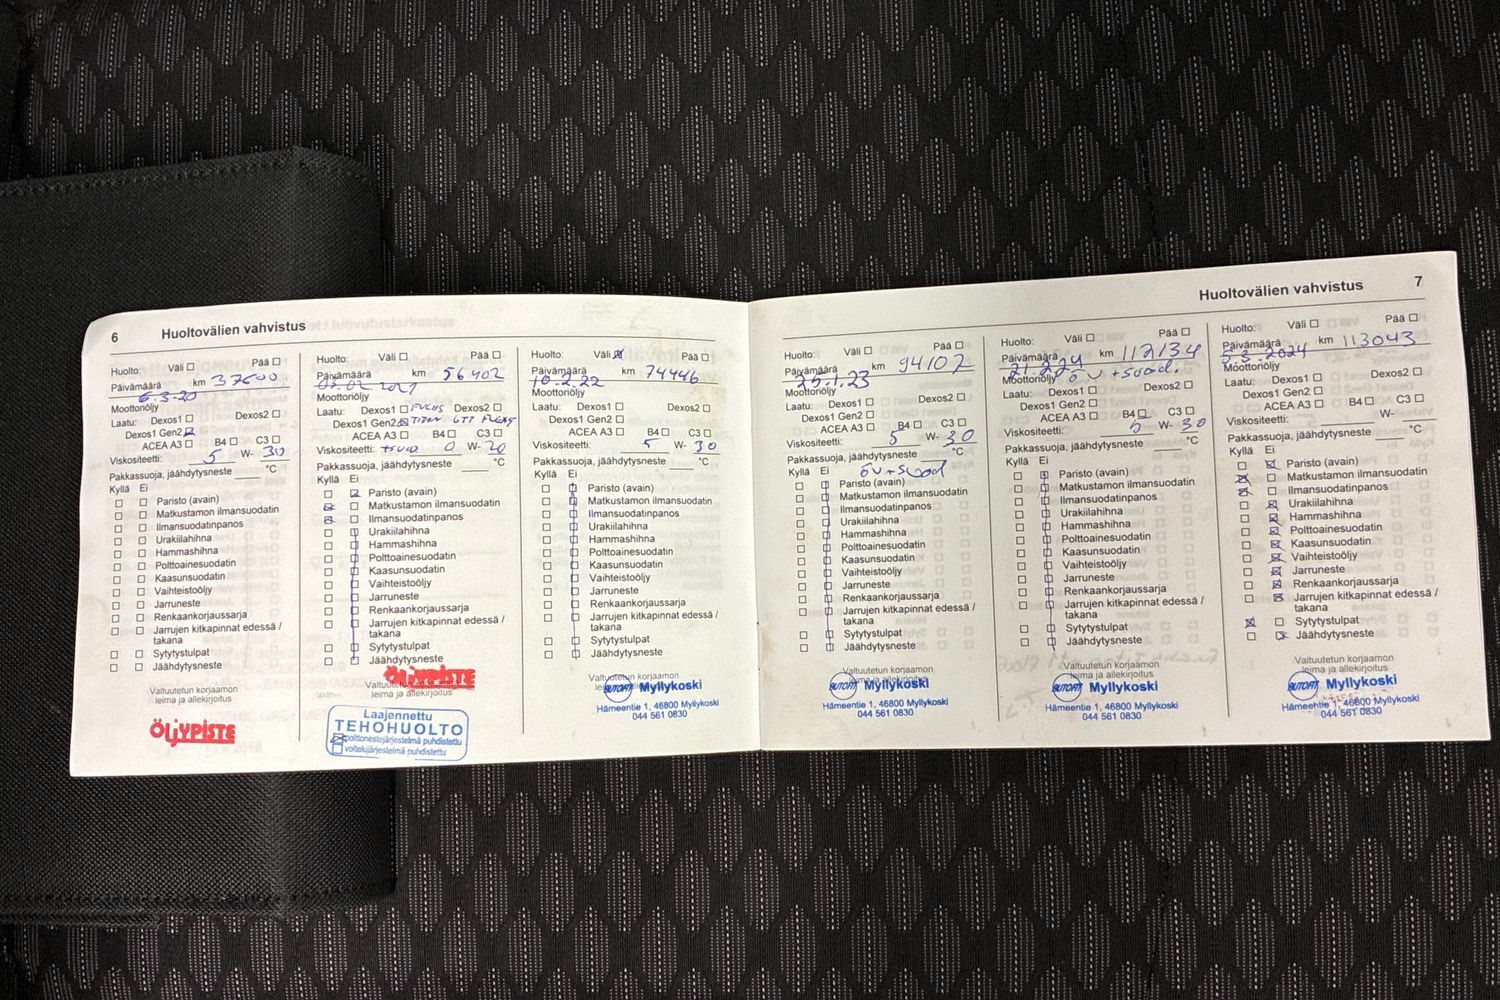 6
Huoltovälien vahvistus
Huolto: Väli Pää
Päivämäärä km 37600
6.3-20
Moottoriöljy
Laatu: Dexos1 Dexos2
Dexos1 Gen2
ACEA A3 B4 C3
Viskositeetti: 5 W- 30
Pakkassuoja, jäähdytysneste °C
Kyllä Ei
Paristo (avain)
Matkustamon ilmansuodatin
Ilmansuodatinpanos
Urakiilahihna
Hammashihna
Polttoainesuodatin
Kaasunsuodatin
Vaihteistoöljy
Jarruneste
Renkaankorjaussarja
Jarrujen kitkapinnat edessä /
takana
Sytytystulpat
Jäähdytysneste
Valtuutetun korjaamon
leima ja allekirjoitus
ÖLJYPISTE
Huolto: Väli Pää
Päivämäärä km 56402
Moottoriöljy
Laatu: Dexos1 FUCHS Dexos2
Dexos1 Gen2 TITAN GT1
ACEA A3 B4 C3
Viskositeetti: 0 W- 20
Pakkassuoja, jäähdytysneste °C
Kyllä Ei
Paristo (avain)
Matkustamon ilmansuodatin
Ilmansuodatinpanos
Urakiilahihna
Hammashihna
Polttoainesuodatin
Kaasunsuodatin
Vaihteistoöljy
Jarruneste
Renkaankorjaussarja
Jarrujen kitkapinnat edessä /
takana
Sytytystulpat
Jäähdytysneste
ÖLJYPISTE
leima ja allekirjoitus
Laajennettu
TEHOHUOLTO
polttonestejärjestelmä puhdistettu
voitelujärjestelmä puhdistettu
Huolto: Väli Pää
Päivämäärä km 74446
10.2.22
Moottoriöljy
Laatu: Dexos1 Dexos2
Dexos1 Gen2
ACEA A3 B4 C3
Viskositeetti: 5 W- 30
Pakkassuoja, jäähdytysneste °C
Kyllä Ei
Paristo (avain)
Matkustamon ilmansuodatin
Ilmansuodatinpanos
Urakiilahihna
Hammashihna
Polttoainesuodatin
Kaasunsuodatin
Vaihteistoöljy
Jarruneste
Renkaankorjaussarja
Jarrujen kitkapinnat edessä /
takana
Sytytystulpat
Jäähdytysneste
Valtuutetun korjaamon
AUTOFIT Myllykoski
Hämeentie 1, 46800 Myllykoski
044 561 0830
Huoltovälien vahvistus
7
Huolto: Väli Pää
Päivämäärä km 94107
25.1.23
Moottoriöljy
Laatu: Dexos1 Dexos2
Dexos1 Gen2
ACEA A3 B4 C3
Viskositeetti: 5 W- 30
Pakkassuoja, jäähdytysneste °C
Kyllä Ei öv+suod
Paristo (avain)
Matkustamon ilmansuodatin
Ilmansuodatinpanos
Urakiilahihna
Hammashihna
Polttoainesuodatin
Kaasunsuodatin
Vaihteistoöljy
Jarruneste
Renkaankorjaussarja
Jarrujen kitkapinnat edessä /
takana
Sytytystulpat
Jäähdytysneste
Valtuutetun korjaamon
AUTOFIT Myllykoski
Hämeentie 1, 46800 Myllykoski
044 561 0830
Huolto: Väli Pää
Päivämäärä km 112134
Moottoriöljy öv +suod.
Laatu: Dexos1 Dexos2
Dexos1 Gen2
ACEA A3 B4 C3
Viskositeetti: 5 W- 30
Pakkassuoja, jäähdytysneste °C
Kyllä Ei
Paristo (avain)
Matkustamon ilmansuodatin
Ilmansuodatinpanos
Urakiilahihna
Hammashihna
Polttoainesuodatin
Kaasunsuodatin
Vaihteistoöljy
Jarruneste
Renkaankorjaussarja
Jarrujen kitkapinnat edessä /
takana
Sytytystulpat
Jäähdytysneste
Valtuutetun korjaamon
leima ja allekirjoitus
AUTOFIT Myllykoski
Hämeentie 1, 46800 Myllykoski
044 561 0830
Huolto: Väli Pää
Päivämäärä km 113043
5.3.2024
Moottoriöljy
Laatu: Dexos1 Dexos2
Dexos1 Gen2
ACEA A3 B4 C3
Viskositeetti: W-
Pakkassuoja, jäähdytysneste °C
Kyllä Ei
Paristo (avain)
Matkustamon ilmansuodatin
Ilmansuodatinpanos
Urakiilahihna
Hammashihna
Polttoainesuodatin
Kaasunsuodatin
Vaihteistoöljy
Jarruneste
Renkaankorjaussarja
Jarrujen kitkapinnat edessä /
takana
Sytytystulpat
Jäähdytysneste
Valtuutetun korjaamon
leima ja allekirjoitus
AUTOFIT Myllykoski
Hämeentie 1, 46800 Myllykoski
044 561 0830